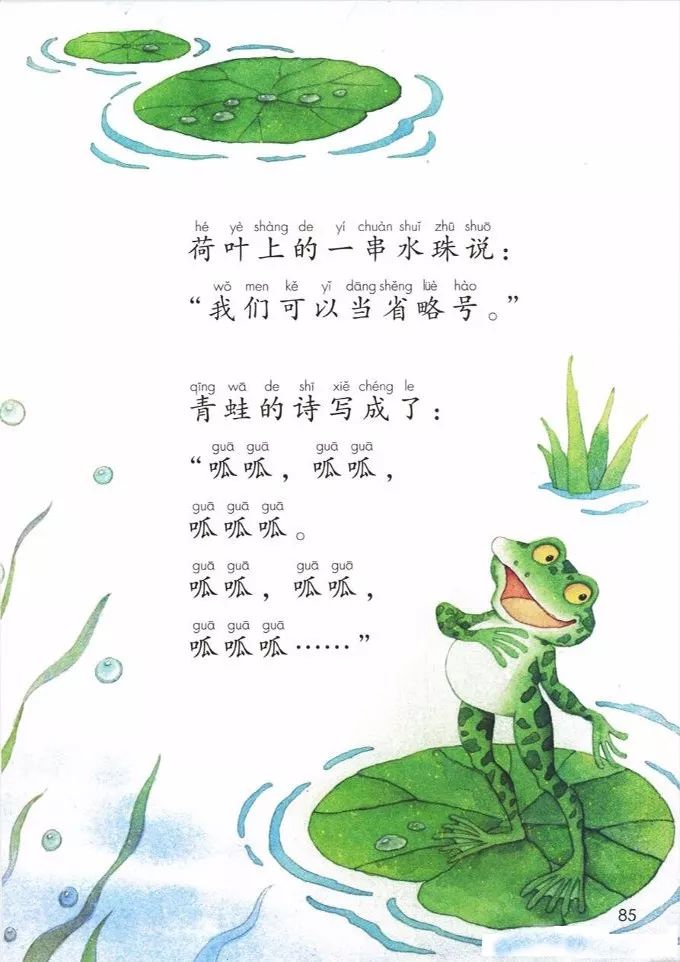 hé yè shàng de yí chuàn shuǐ zhū shuō
荷叶上的一串水珠说：
wǒ men kě yǐ dāng shěng lüè hào
“我们可以当省略号。”
qīng wā de shī xiě chéng le
青蛙的诗写成了：
guā guā guā guā
“呱呱，呱呱，
guā guā guā
呱呱呱。
guā guā guā guā
呱呱，呱呱，
guā guā guā
呱呱呱……”
85